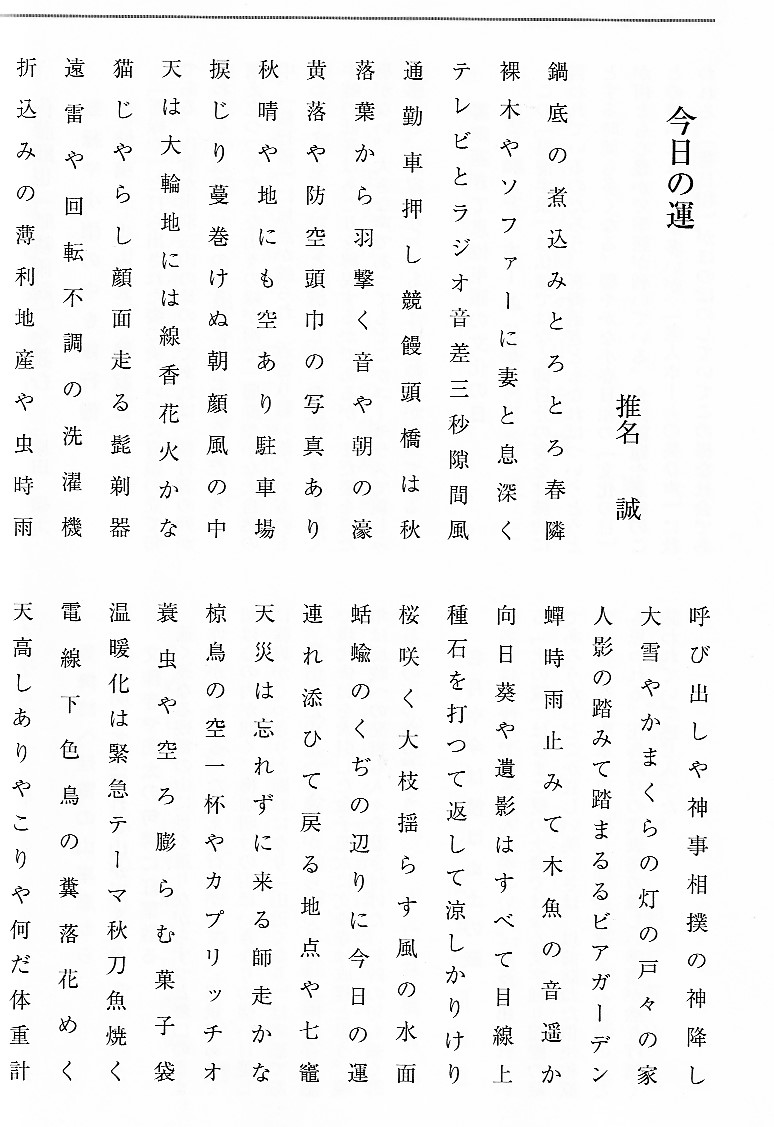 今日の運
椎名 誠
鍋底の煮込みとろとろ春隣
裸木やソファーに妻と息深く
テレビとラジオ音差三秒隙間風
通勤車押し競饅頭橋は秋
落葉から羽撃く音や朝の濠
黄落や防空頭巾の写真あり
秋晴や地にも空あり駐車場
捩じり蔓巻けぬ朝顔風の中
天は大輪地には線香花火かな
猫じゃらし顔面走る髭剃器
遠雷や回転不調の洗濯機
折込みの薄利地産や虫時雨
呼び出しや神事相撲の神降し
大雪やかまくらの灯の戸々の家
人影の踏みて踏まるるビアガーデン
蟬時雨止みて木魚の音遥か
向日葵や遺影はすべて目線上
種石を打つて返して涼しかりけり
桜咲く大枝揺らす風の水面
蛞蝓のくぢの辺りに今日の運
連れ添ひて戻る地点や七竈
天災は忘れずに来る師走かな
椋鳥の空一杯やカプリッチオ
蓑虫や空ろ膨らむ菓子袋
温暖化は緊急テーマ秋刀魚焼く
電線下色鳥の糞落花めく
天高しありやこりや何だ体重計